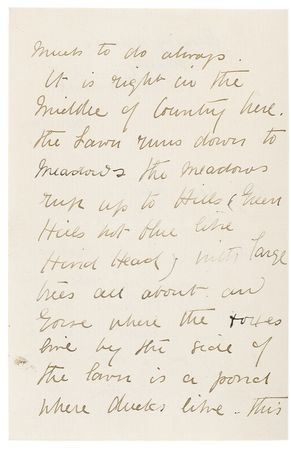 much to do always.
It is right in the
Middle of Country here.
the Lawn runs down to
Meadows the meadows
run up to Hills (Green
Hills not blue like
Hind Head) with large
trees all about and
Gorse where the foxes
live by the side of
the lawn is a pond
where ducks live. This